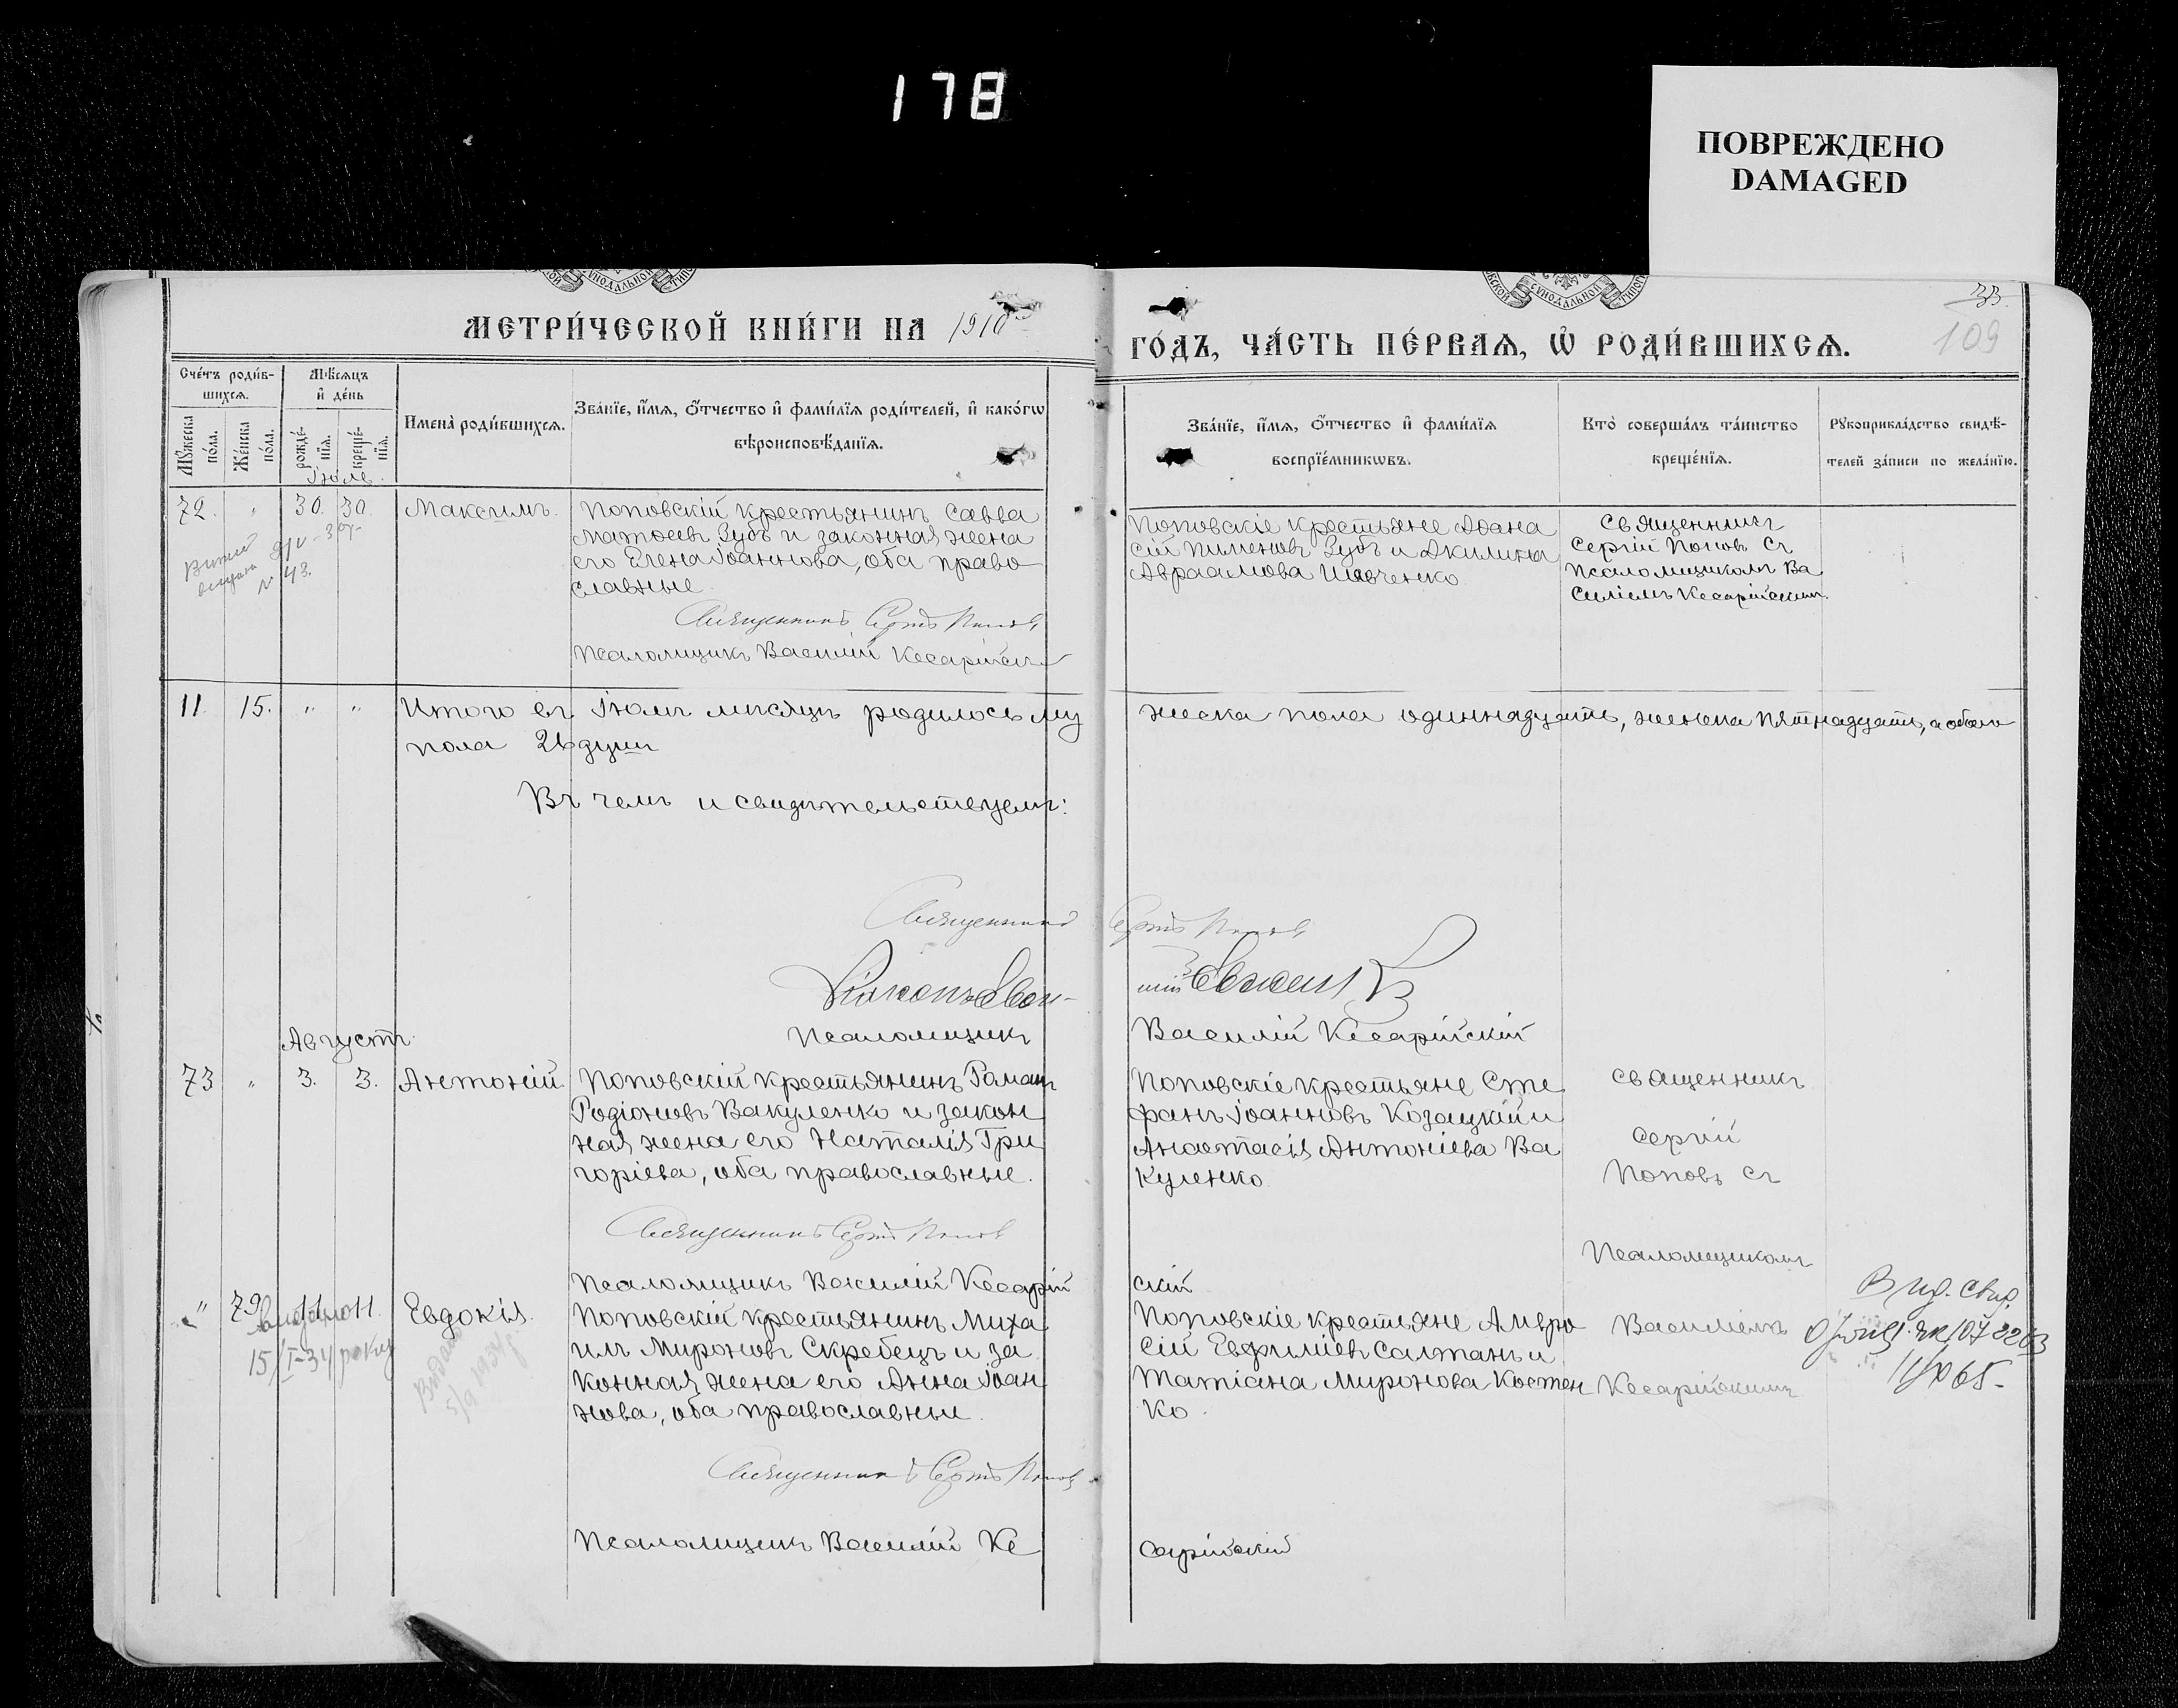 178
ПОВРЕЖДЕНО
DAMAGED
МЕТРИ́ЧЕСКОЙ КНИ́ГИ НА 1910
ГО́ДЪ, ЧА́СТЬ ПЕ́РВАѦ, Ѡ РОДИ́ВШИХСѦ.
33
109
Сче́тъ роди́в-
шихсѧ.
Мѣ́сѧцъ
и де́нь
Мꙋ́жеска
по́ла.
Же́нска
по́ла.
рожде́-
нїѧ.
креще́-
нїѧ.
Имена̀ роди́вшихсѧ.
Зва́нїе, и́мѧ, ѻ́тчество и фами́лїѧ роди́телей, и како́гѡ
вѣроисповѣ́данїѧ.
Зва́нїе, и́мѧ, ѻ́тчество и фами́лїѧ
воспрїе́мникѡвъ.
Кто̀ соверша́лъ та́инство
креще́нїѧ.
Рꙋкоприкла́дство свидѣ́-
телей за́писи по жела́нїю.
Іюль
72. " 30. 30. Максимъ.
Поповскій крестьянинъ Савва
Матѳеевъ Зубъ и законная жена
его Елена Іоаннова, оба право
славные
Священникъ Сергій Поповъ
Псаломщикъ Василій Кесарійскій
№ 43.
Поповскіе крестьяне Аѳана
сій Пименовъ Зубъ и Акилина
Авраамова Шевченко
Священникъ
Сергій Поповъ съ
Псаломщикомъ Ва
силіемъ Кесарійскимъ.
11. 15. " " Итого въ Іюлѣ мѣсяцѣ родилось му
жеска пола одиннадцать, женска пятнадцать, а обоего
пола 26 душъ
Въ чемъ и свидѣтельствуемъ:
Священникъ Сергій Поповъ
Псаломщикъ Василій Кесарійскій
Августъ
73 " 3. 3. Антоній
Поповскій крестьянинъ Романъ
Родіоновъ Вакуленко и закон
ная жена его Наталія Гри
горіева, оба православные.
Священникъ Сергій Поповъ
Псаломщикъ Василій Кесарій
скій
Поповскіе крестьяне Сте
фанъ Іоанновъ Козацкій и
Анастасія Антоніева Ва
куленко
Священникъ
Сергій
Поповъ съ
Псаломщикомъ
Василіемъ
Кесарійскимъ
" 79 11 11. Евдокія.
15/I-34 року
Видано
5/9 1934
Поповскій крестьянинъ Миха
илъ Мироновъ Скребецъ и за
конная жена его Анна Іоан
нова, оба православные.
Священникъ Сергій Поповъ
Псаломщикъ Василій Ке
сарійскій
Поповскіе крестьяне Амвро
сій Евфиміевъ Салтанъ и
Татіана Миронова Костен
ко.
Вид. свид.